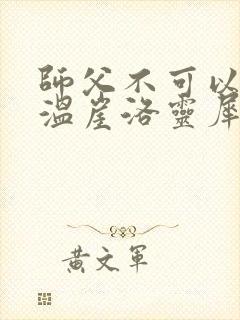 師父不可以
溫崖洛靈犀
黃文軍